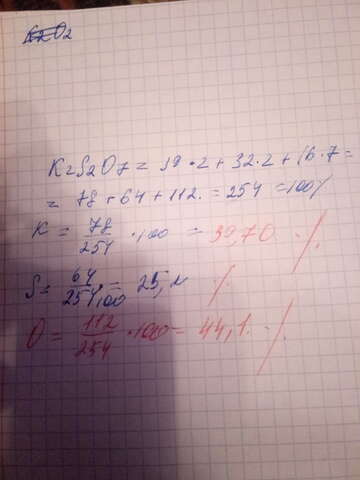 K2S2O7 = 39 · 2 + 32 · 2 + 16 · 7 =
= 78 + 64 + 112 = 254 = 100%
K = 78/254 · 100 = 30,70 %
S = 64/254 · 100 = 25, %
O = 112/254 · 100 = 44,1 %